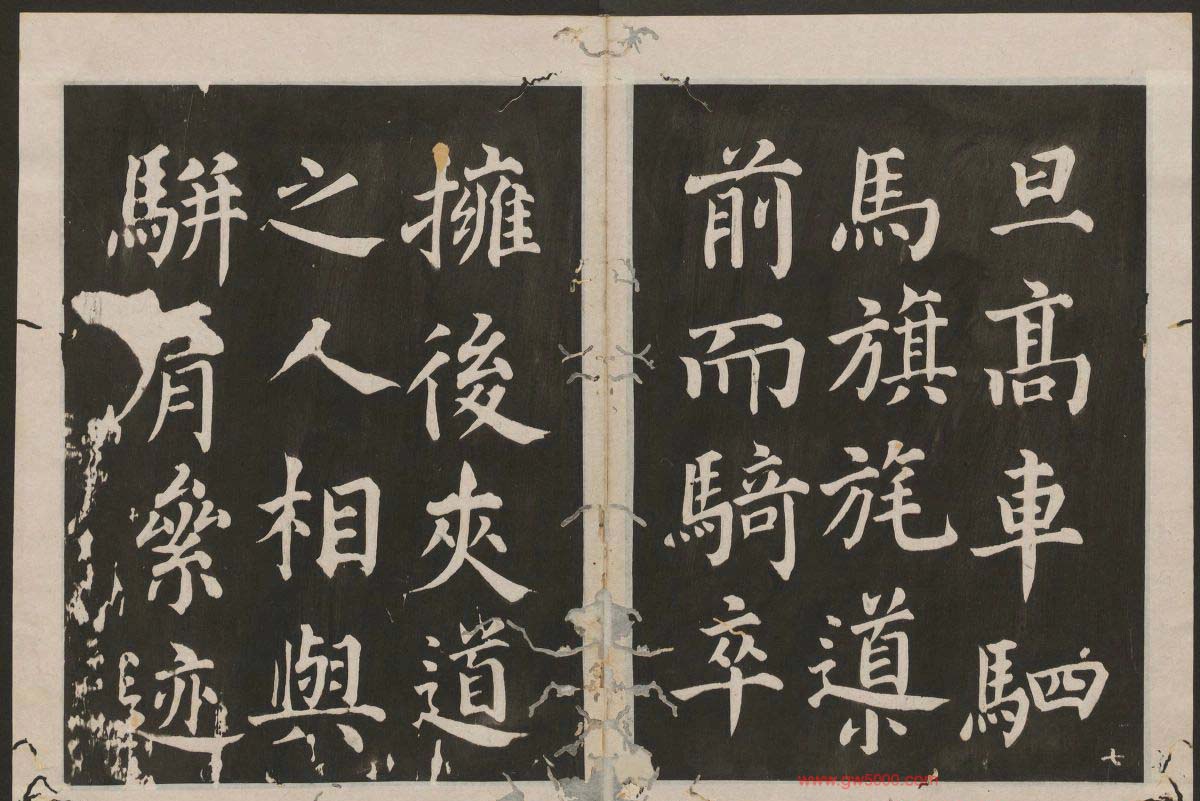 旦髙車駟
馬旗旄導
前而騎卒
擁後夾道
之人相與
駢肩絫迹
七
www.gw5000.com